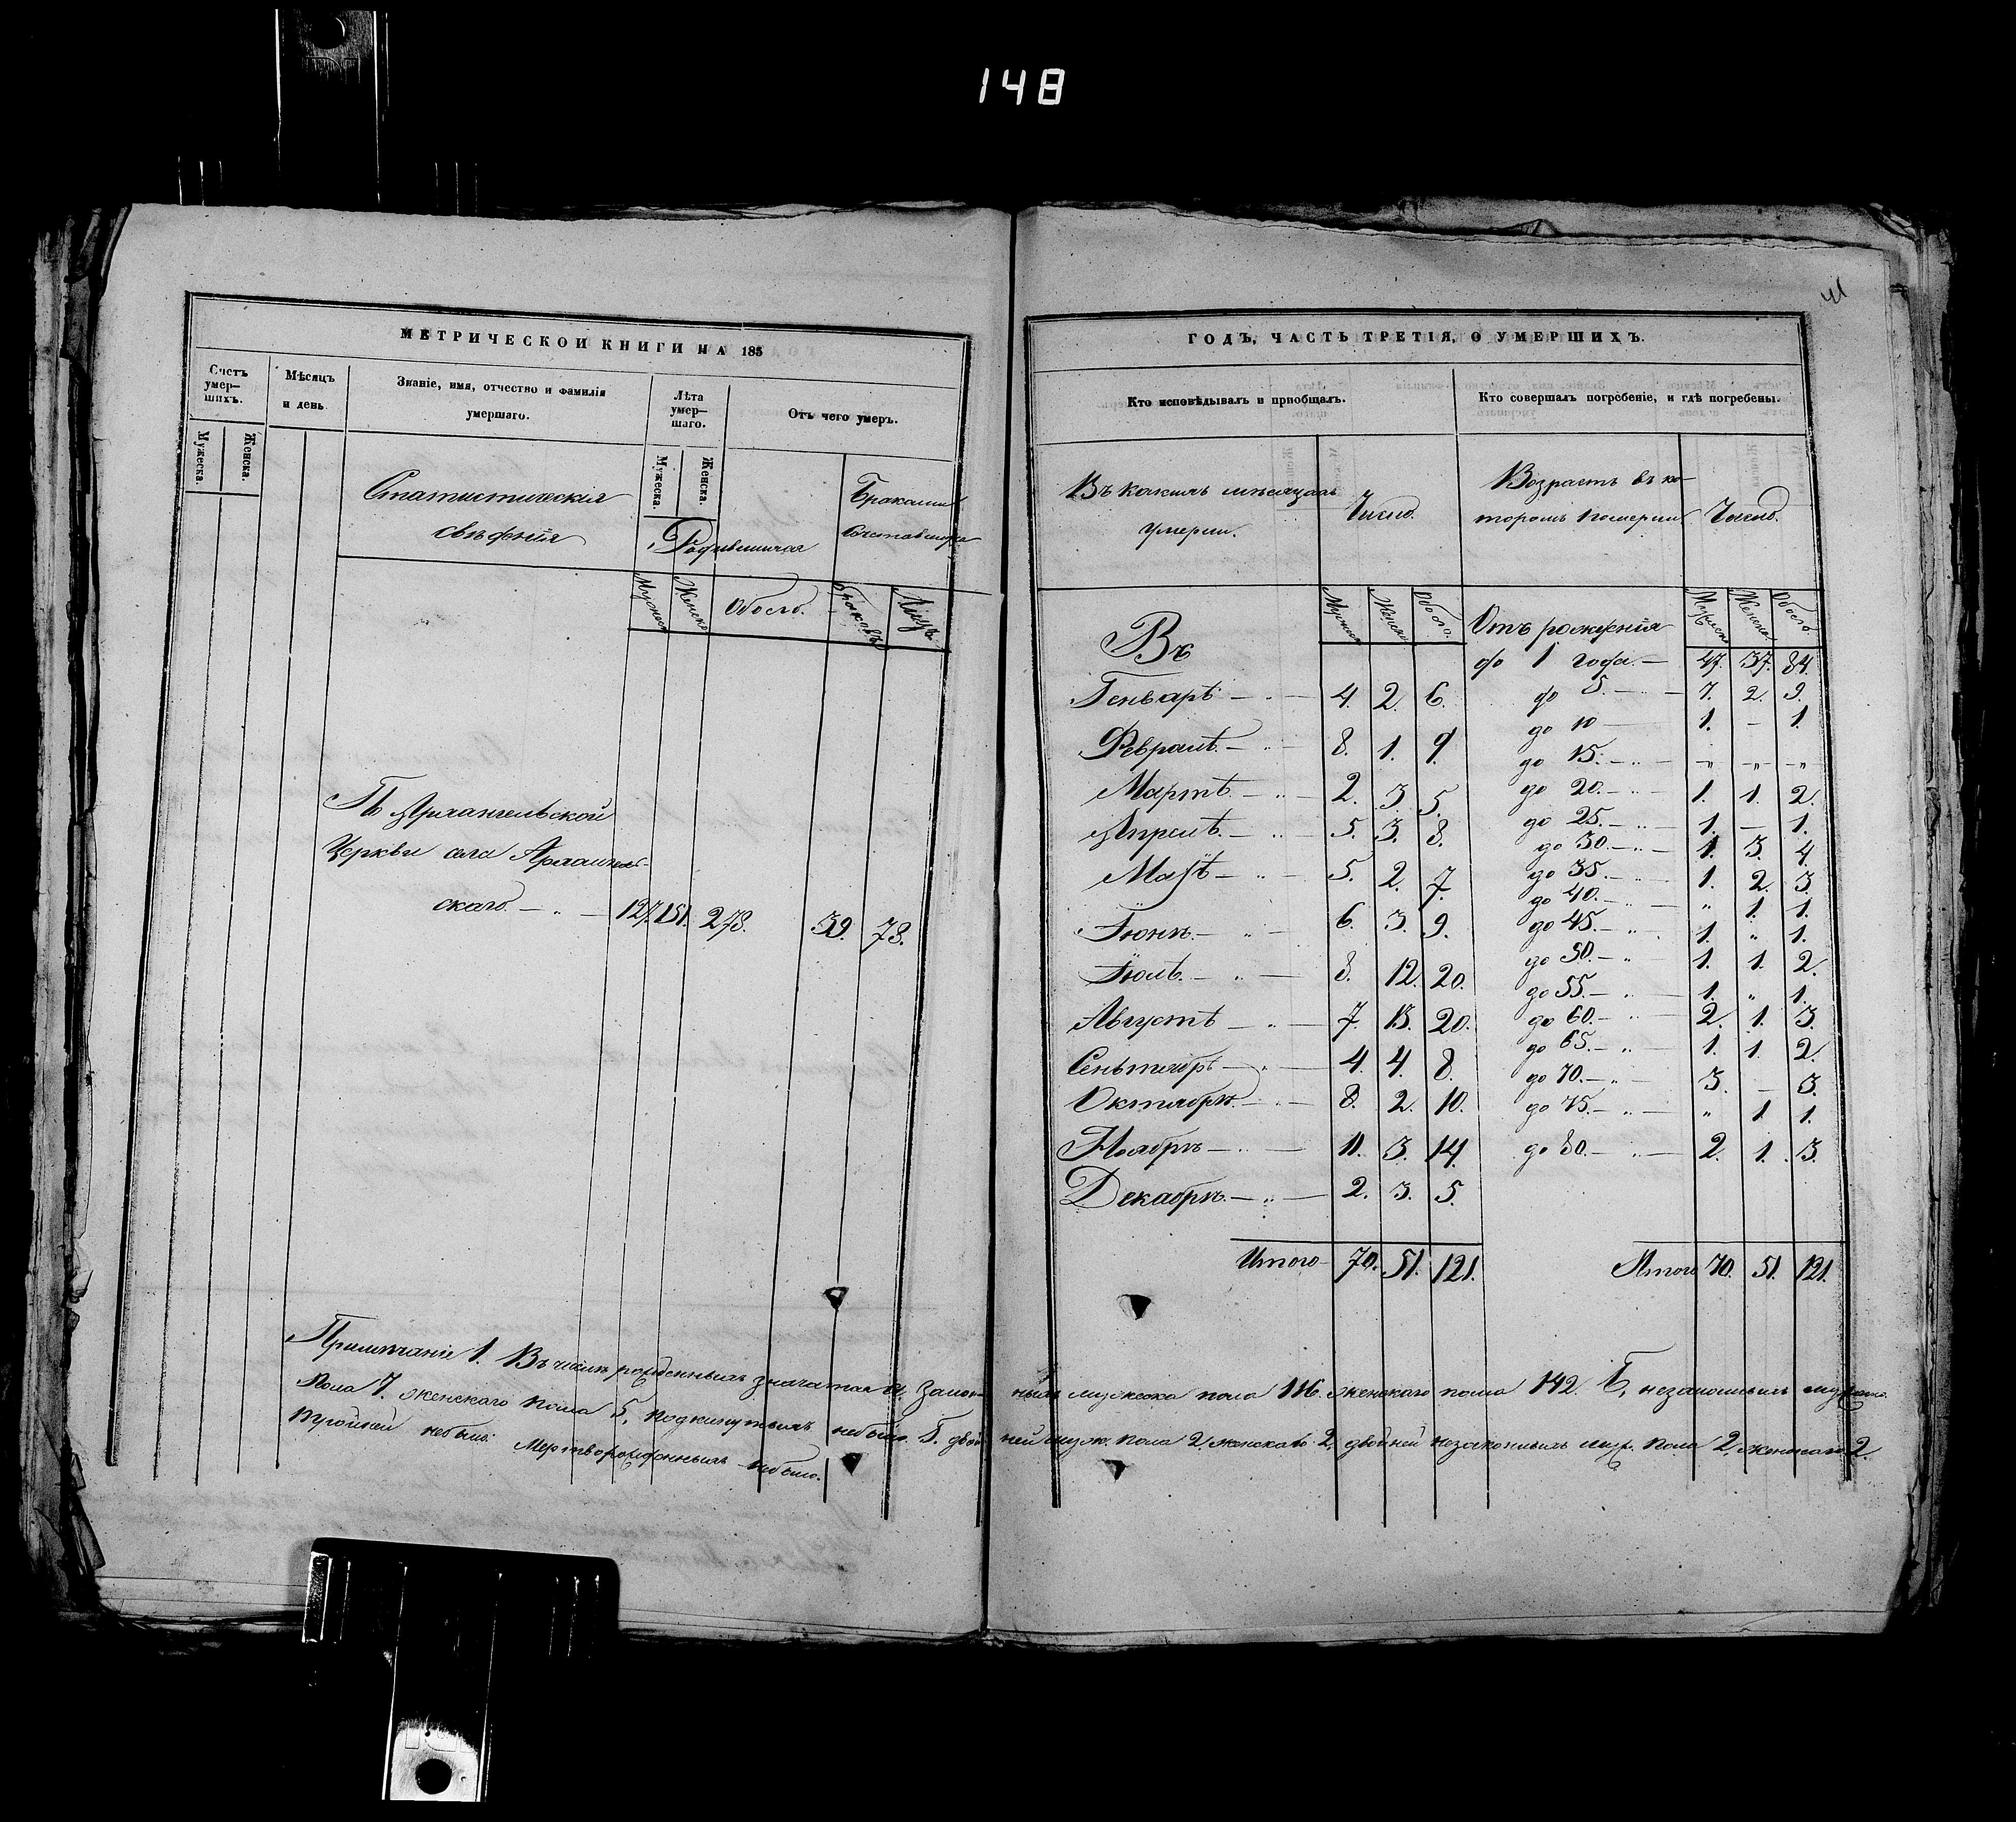 148
41
МЕТРИЧЕСКОЙ КНИГИ НА 185
Счетъ умер— шихъ.
Мѣсяцъ и день
Званіе, имя, отчество и фамилія умершаго.
Лѣта умер— шаго.
Отъ чего умеръ.
Мужеска.
Женска.
Мужеска.
Женска.
Статистическія
свѣденія
Родившихся
Браками
Сочетавшихся
Мужеск
Женска
Обоего.
Браковъ
Лицъ
Архангельской
Церкви села Архангель-
скаго. — „ — 127. 151. 278. 39. 78.
Примѣчаніе 1. Въ числѣ рожденныхъ значатся А, закон-
пола 7. женского пола 5, подкинутыхъ небыло. Б. двой-
тройней небыло. Мертворожденныхъ небыло.
ГОДЪ, ЧАСТЬ ТРЕТІЯ, О УМЕРШИХЪ.
Кто исповѣдывалъ и пріобщалъ.
Кто совершалъ погребеніе, и гдѣ погребены.
Въ какихъ мѣсяцахъ
умерли.
Число.
Возрастъ въ ко-
торомъ померли
Число.
Мужеск
Женск
Обоего.
Мужеска
Женска.
Обоего.
Въ
Генварѣ — „ — 4. 2. 6.
Февралѣ. — „ — 8. 1. 9.
Мартѣ. — „ — 2. 3. 5.
Апрелѣ. — „ — 5. 3. 8.
Маѣ — „ — 5. 2. 7.
Іюнѣ. — „ — 6. 3. 9.
Іюлѣ. — „ — 8. 12. 20.
Августѣ — „ — 7. 13. 20.
Сентябрѣ — „ — 4. 4. 8.
Октябрѣ. — „ — 8. 2. 10.
Ноябрѣ — „ — 11. 3. 14.
Декабрѣ. — „ — 2. 3. 5.
Итого 70. 51. 121.
Отъ рожденія
до 1 года. — 47. 37. 84.
до 5. — „ — 7. 2. 9.
до 10 — 1. — 1.
до 15. — „ — „ „ „
до 20. — „ — 1. 1. 2.
до 25. — „ — 1. — 1.
до 30. — „ — 1. 3. 4.
до 35. — „ — 1. 2. 3.
до 40. — „ — „ 1. 1.
до 45. — „ — 1. „ 1.
до 50. — „ — 1. 1. 2.
до 55. — „ — 1. „ 1.
до 60. — „ — 2. 1. 3.
до 65. — „ — 1. 1. 2.
до 70. — „ — 3. — 3.
до 75. — „ — „ 1 1.
до 80. — „ — 2. 1. 3.
Итого 70. 51. 121.
ныхъ мужеска пола 116. женскаго пола 142. Б, незаконныхъ мужеско
ней муж. пола 2, женскаго 2, двойней незаконныхъ муж. пола 2, женскаго 2.